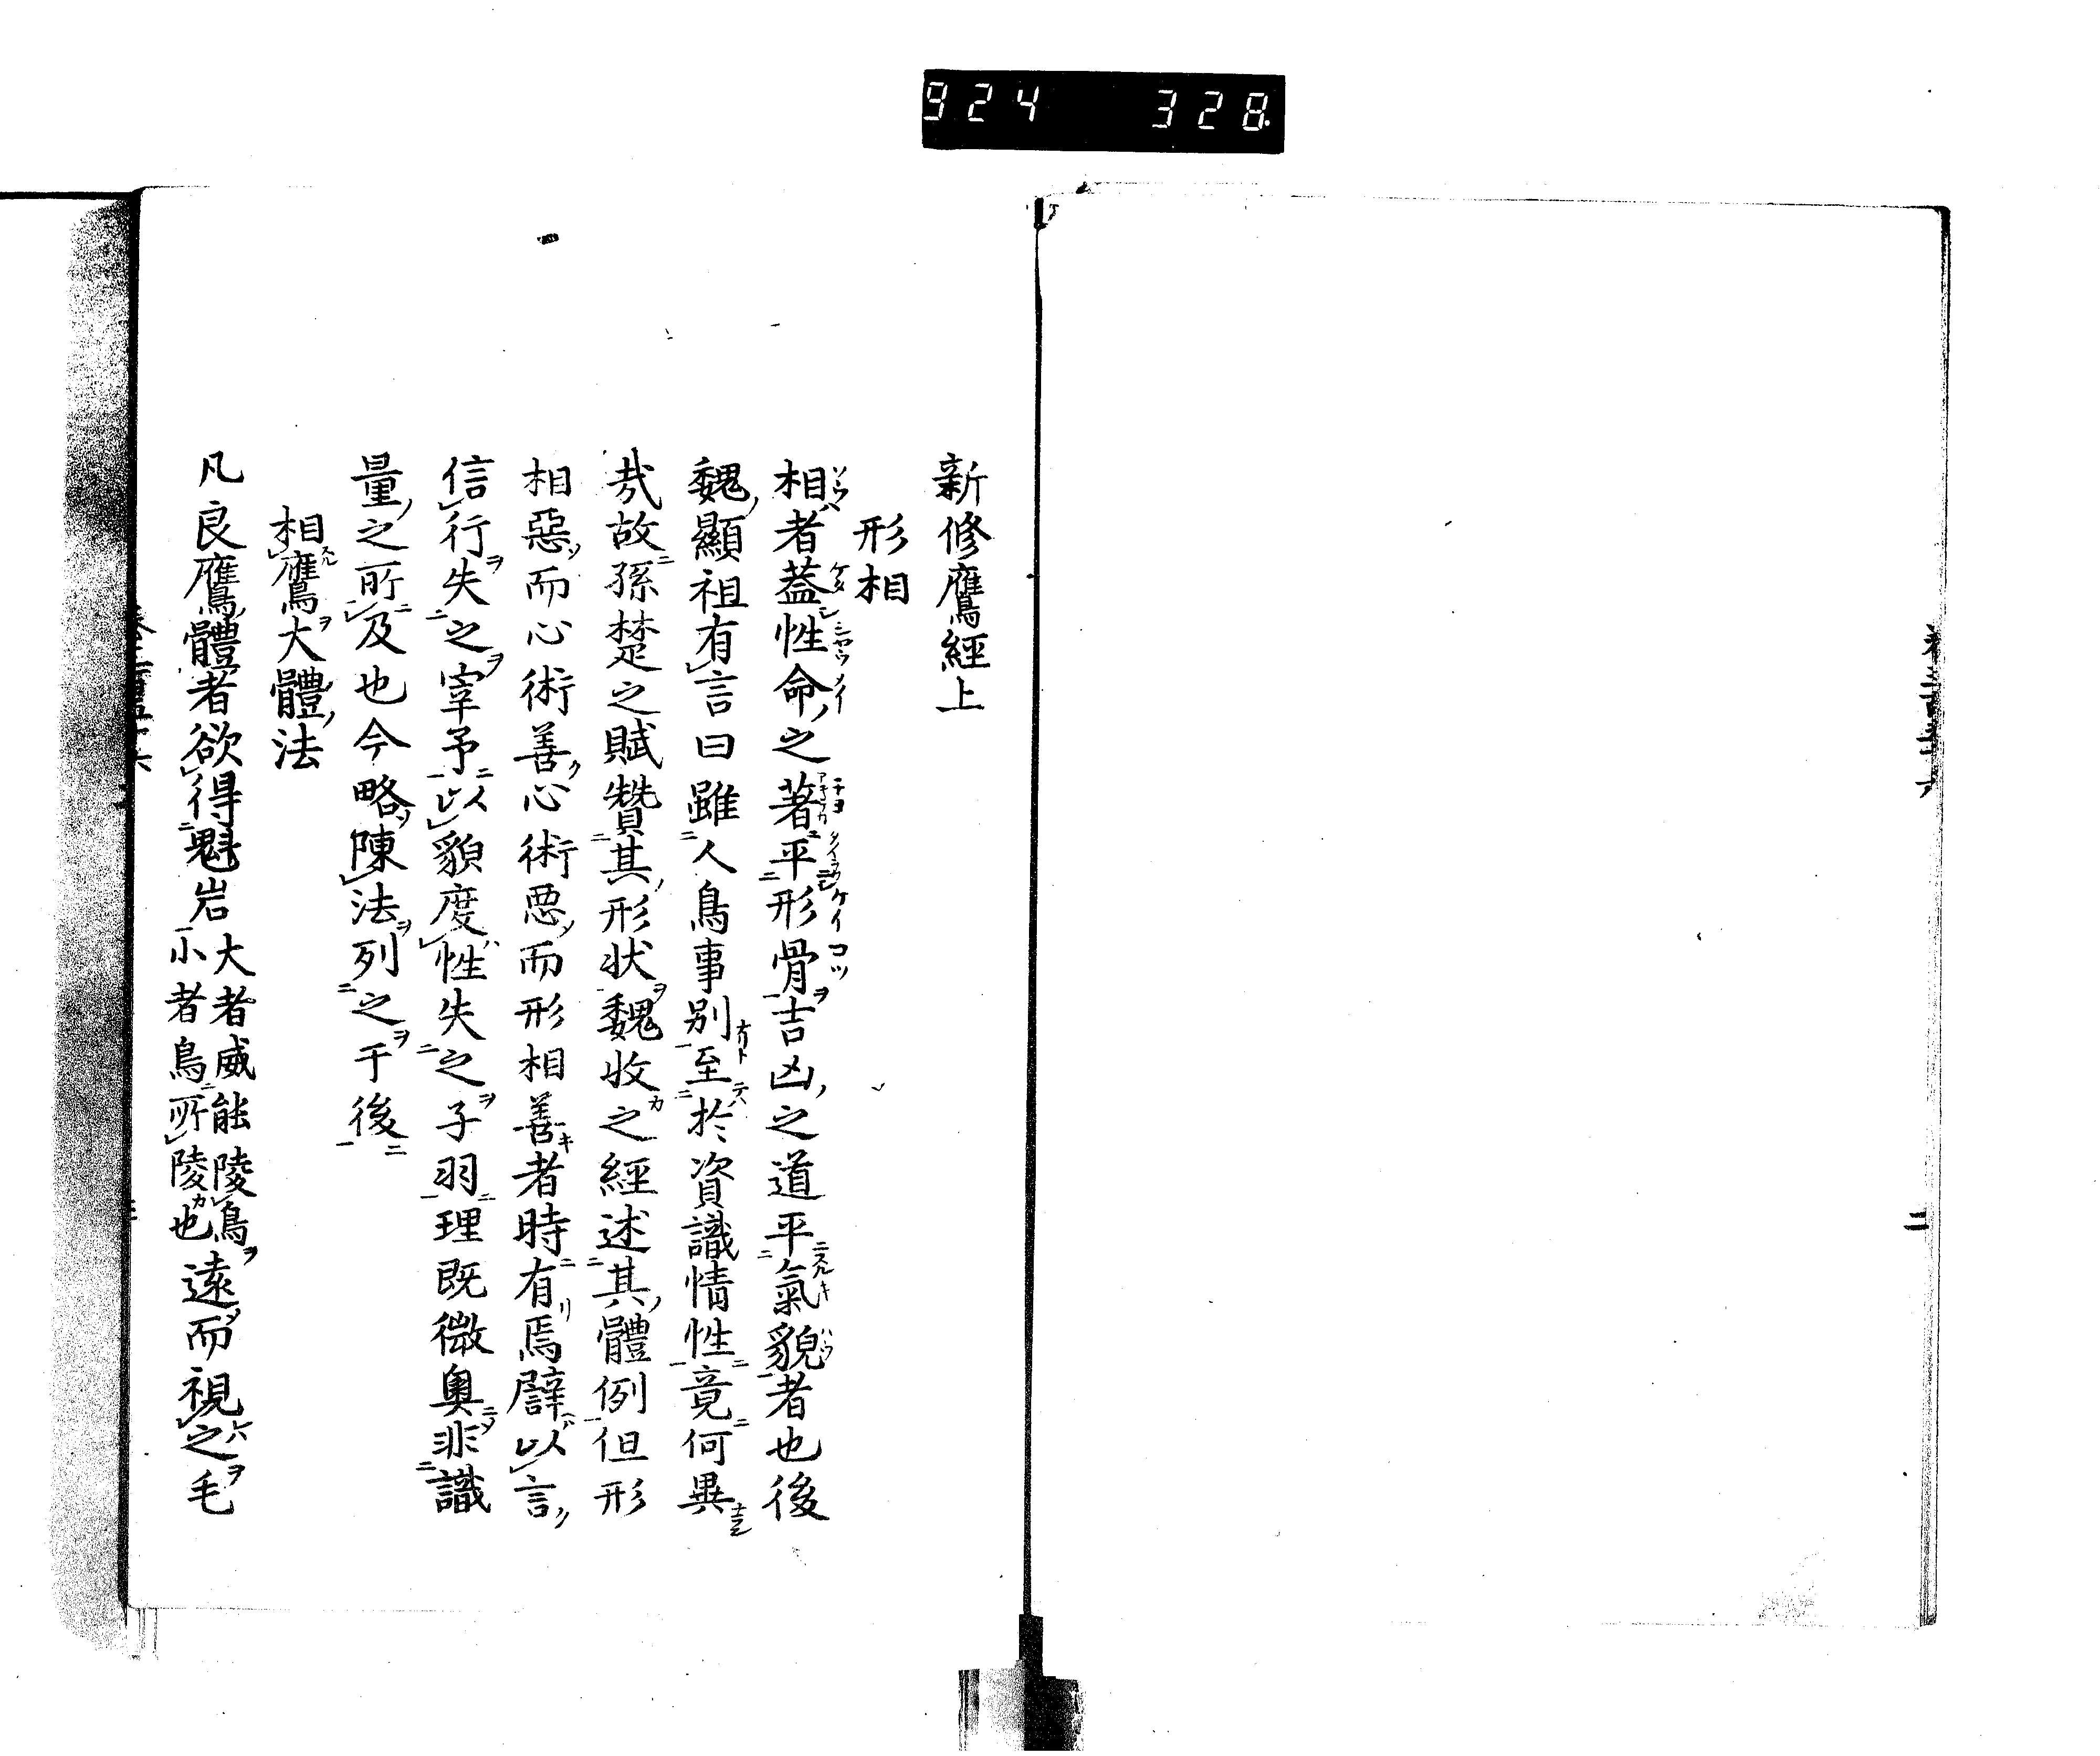 924 328
新修鷹經上
形相
相者葢性命之著乎形骨吉凶之道乎氣貌者也後
魏顯祖有言曰雖人鳥事別至於資識情性竟何異
㢤故孫楚之賦贊其形状魏收之經述其體例但形
相惡而心術善心術悪而形相善者時有焉辟以言
信行失之宰予以貌度性失之子羽理既微奥非識
量之所及也今略陳法列之于後
相鷹大體法
凡良鷹體者欲得魁岩大者威能陵鳥小者鳥所陵也遠而視之毛
二